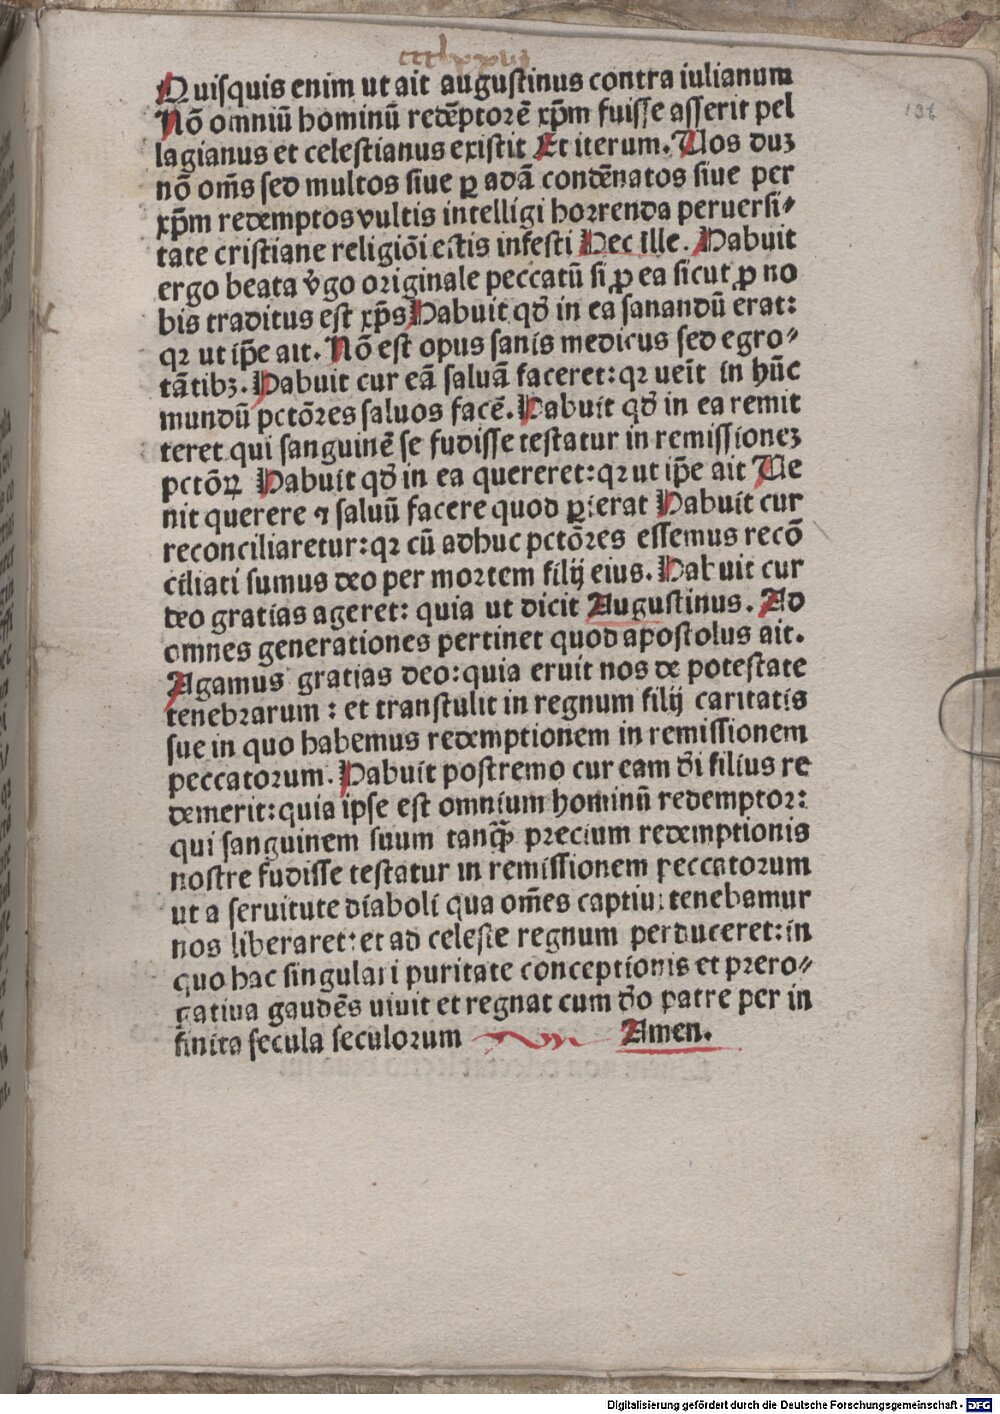 ccclxxvij
136
Quisquis enim ut ait augustinus contra iulianum
Nō omniū hominū redēptorē xp̄m fuisse asserit pel
lagianus et celestianus existit Et iterum. Uos duꝫ
nō om̄s sed multos siue ꝑ adā condēnatos siue per
xp̄m redemptos vultis intelligi horrenda peruersi⸗
tate cristiane religiōi estis infesti Hec ille. Habuit
ergo beata v̄go originale peccatū si ꝓ ea sicut ꝓ no
bis traditus est xp̄s Habuit qd̄ in ea sanandū erat:
qꝛ ut ip̄e ait. Nō est opus sanis medicus sed egro⸗
tātibꝫ. Habuit cur eā saluā faceret: qꝛ ueīt in hūc
mundū pctōres saluos facē. Habuit qd̄ in ea remit
teret qui sanguinē se fudisse testatur in remissioneꝫ
pctōꝝ Habuit qd̄ in ea quereret: qꝛ ut ip̄e ait Ue
nit querere ⁊ saluū facere quod ꝑierat Habuit cur
reconciliaretur: qꝛ cū adhuc pctōres essemus recō
ciliati sumus deo per mortem filij eius. Habuit cur
deo gratias ageret: quia ut dicit Augustinus. Ad
omnes generationes pertinet quod apostolus ait.
Agamus gratias deo: quia eruit nos de potestate
tenebrarum : et transtulit in regnum filij caritatis
sue in quo habemus redemptionem in remissionem
peccatorum. Habuit postremo cur eam d̄i filius re
demerit: quia ipse est omnium hominū redemptor:
qui sanguinem suum tanqᷓ precium redemptionis
nostre fudisse testatur in remissionem peccatorum
ut a seruitute diaboli qua om̄es captiui tenebamur
nos liberaret: et ad celeste regnum perduceret: in
quo hac singulari puritate conceptionis et prero⸗
gatiua gaudēs uiuit et regnat cum d̄o patre per in
finita secula seculorum Amen.
Digitalisierung gefördert durch die Deutsche Forschungsgemeinschaft - DFG